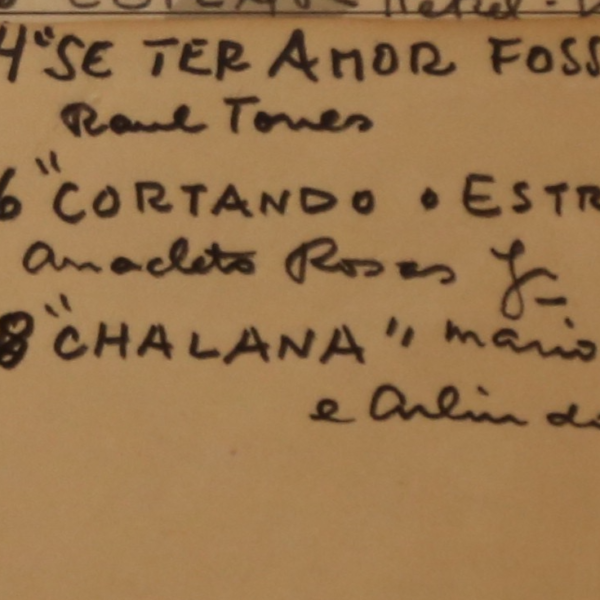 4 "SE TER AMOR FOSS
Raul Torres
6 "CORTANDO • ESTR
Anacleto Rosas Jr
8 "CHALANA", mario
e Arlin do